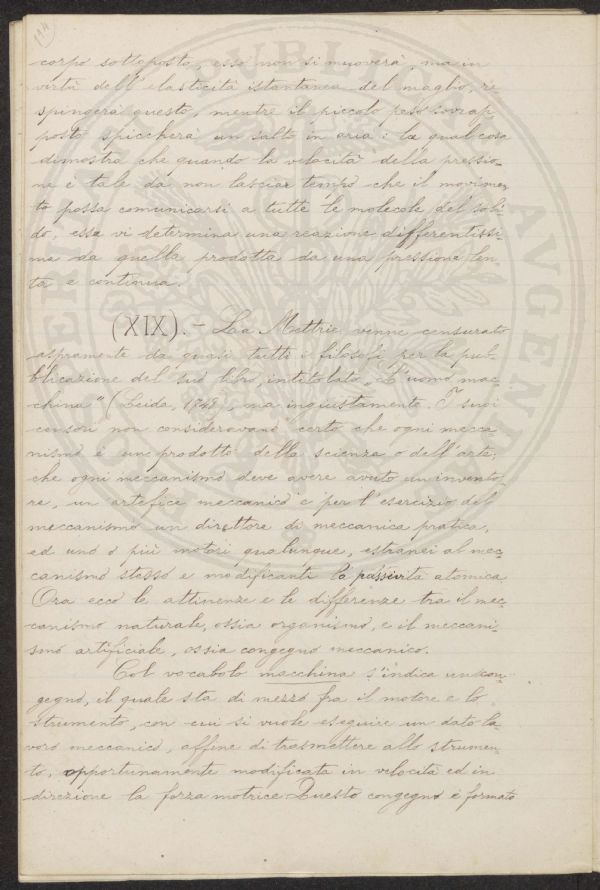 114
corpo sottoposto, esso non si muoverà, ma in
virtù dell'elasticità istantanea del maglio, re-
spingerà questo, mentre il piccolo peso sovrap-
posto spiccherà un salto in aria: la qual cosa
dimostra che quando la velocità della pressio-
ne è tale da non lasciar tempo che il movimen-
to possa comunicarsi a tutte le molecole del soli-
do, essa vi determina una reazione differentissi-
ma da quella prodotta da una pressione len-
ta e continua.
(XIX). - La Mettrie venne censurato
aspramente da quasi tutti i filosofi per la pub-
blicazione del suo libro, intitolato „L'uomo mac-
china" (Leida, 1748), ma ingiustamente. I suoi
censori non consideravano certo che ogni mecca-
nismo è un prodotto della scienza o dell'arte,
che ogni meccanismo deve avere avuto un invento-
re, un artefice meccanico e per l'esercizio del
meccanismo un direttore di meccanica pratica,
ed uno o più motori qualunque, estranei al mec-
canismo stesso e modificanti la passività atomica
Ora ecco le attinenze e le differenze tra il mec-
canismo naturale, ossia organismo, e il meccani-
smo artificiale, ossia congegno meccanico.
Col vocabolo macchina s'indica un con-
gegno, il quale sta di mezzo fra il motore e lo
strumento, con cui si vuole eseguire un dato la-
voro meccanico, affine di trasmettere allo strumen-
to, opportunamente modificata in velocità ed in
direzione la forza motrice Questo congegno è formato